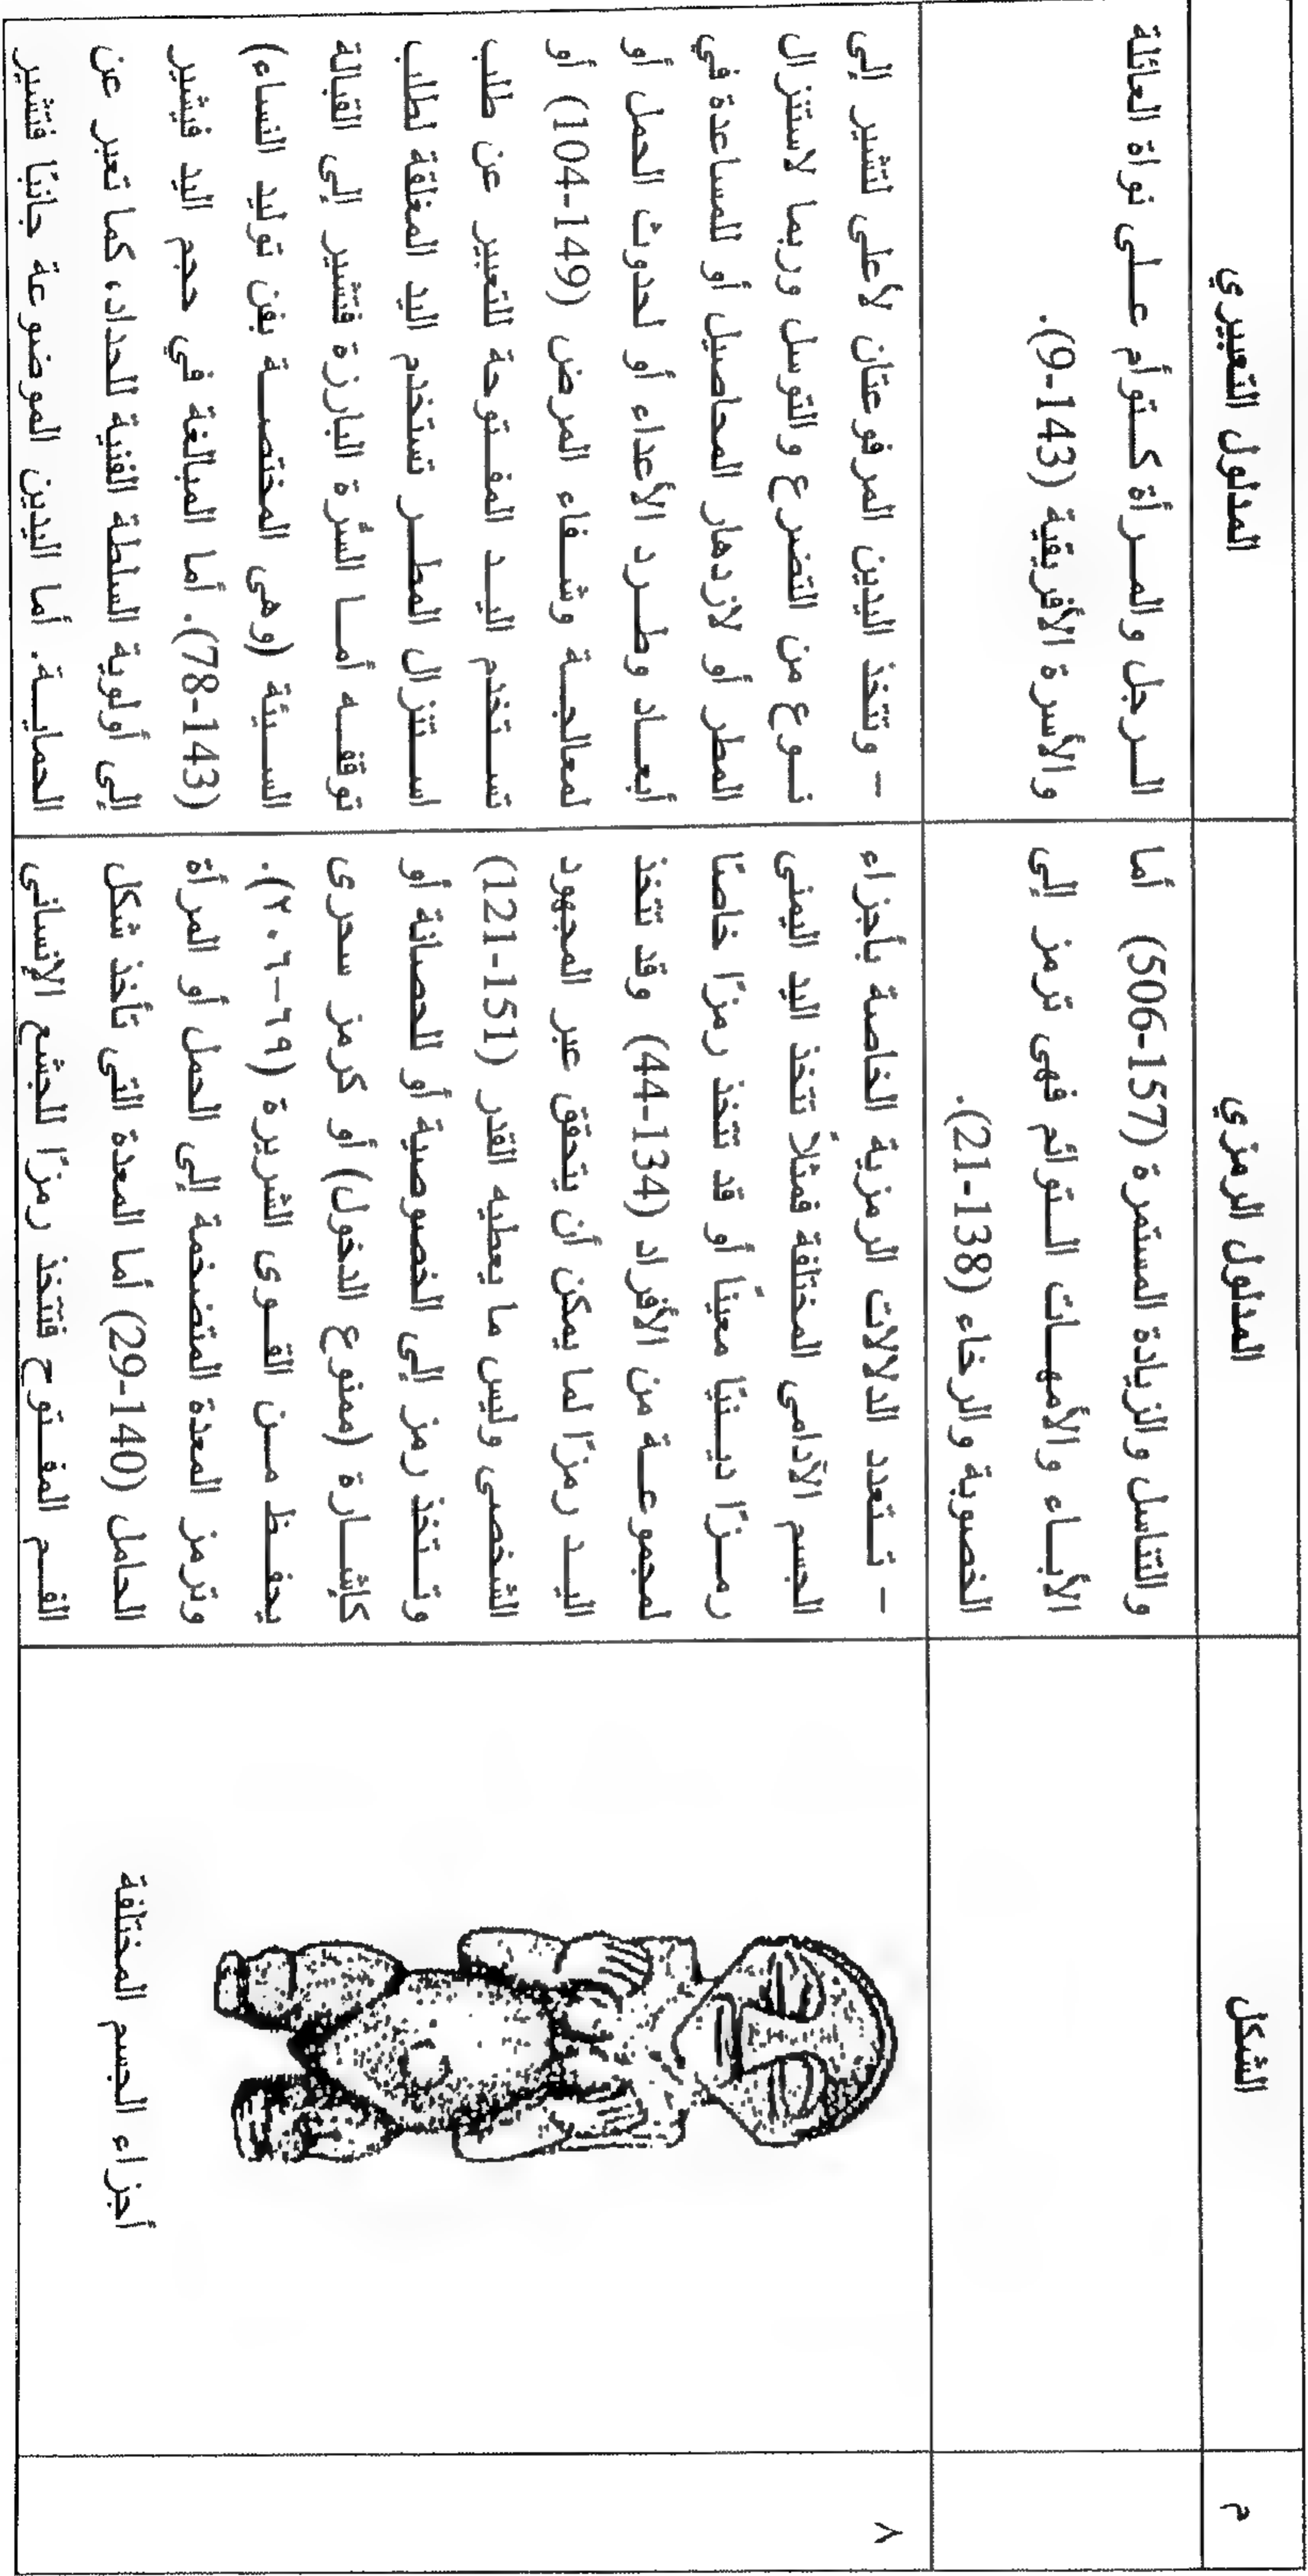 م
الشكل
المدلول الرمزي
المدلول التعبيري
والتناسل والزيادة المستمرة (157-506) أما
الأبـاء والأمهـات الـتوائم فهى ترمز إلى
الخصوبة والرخاء (138-21).
الـرجل والمـرأة كـتوأم عـلى نواة العائلة
والأسرة الأفريقية (143-9).
٨
أجزاء الجسم المختلفة
– تـتعدد الدلالات الرمزية الخاصة بأجزاء
الجسم الآدامى المختلفة فمثلاً تتخذ اليد اليمنى
رمـزًا ديـنيًا معينًا أو قد تتخذ رمزًا خاصًا
لمجموعـة من الأفراد (134-44) وقد تتخذ
اليـد رمزًا لما يمكن أن يتحقق عبر المجهود
الشخصى وليس ما يعطيه القدر (151-121)
وتـتخذ رمز إلى الخصوصية أو للحصانة أو
كإشـارة (ممنوع الدخول) أو كرمز سحرى
يحفـظ مـن القـوى الشريرة (٦٩-٢٠٦).
وترمز المعدة المتضخمة إلى الحمل أو المرأة
الحامل (140-29) أما المعدة التى تأخذ شكل
الفـم المفـتوح فتتخذ رمزًا للجشع الإنسانى
– وتتخذ اليدين المرفوعتان لأعلى لتشير إلى
نـوع من التضرع والتوسل وربما لاستنزال
المطر أو لازدهار المحاصيل أو للمساعدة في
أبعـاد وطـرد الأعداء أو لحدوث الحمل أو
لمعالجـة وشـفاء المرض (149-104) أو
تسـتخدم اليـد المفـتوحة للتعبير عن طلب
اسـتنزال المطـر تستخدم اليد المغلقة لطلب
توقفـه أمـا السُرة البارزة فتشير إلى القبالة
السـيئة (وهى المختصـة بفن توليد النساء)
(143-78). أما المبالغة في حجم اليد فيشير
إلى أولوية السلطة الفنية للحداد، كما تعبر عن
الحمايـة. أما اليدين الموضوعة جانبًا فتشير